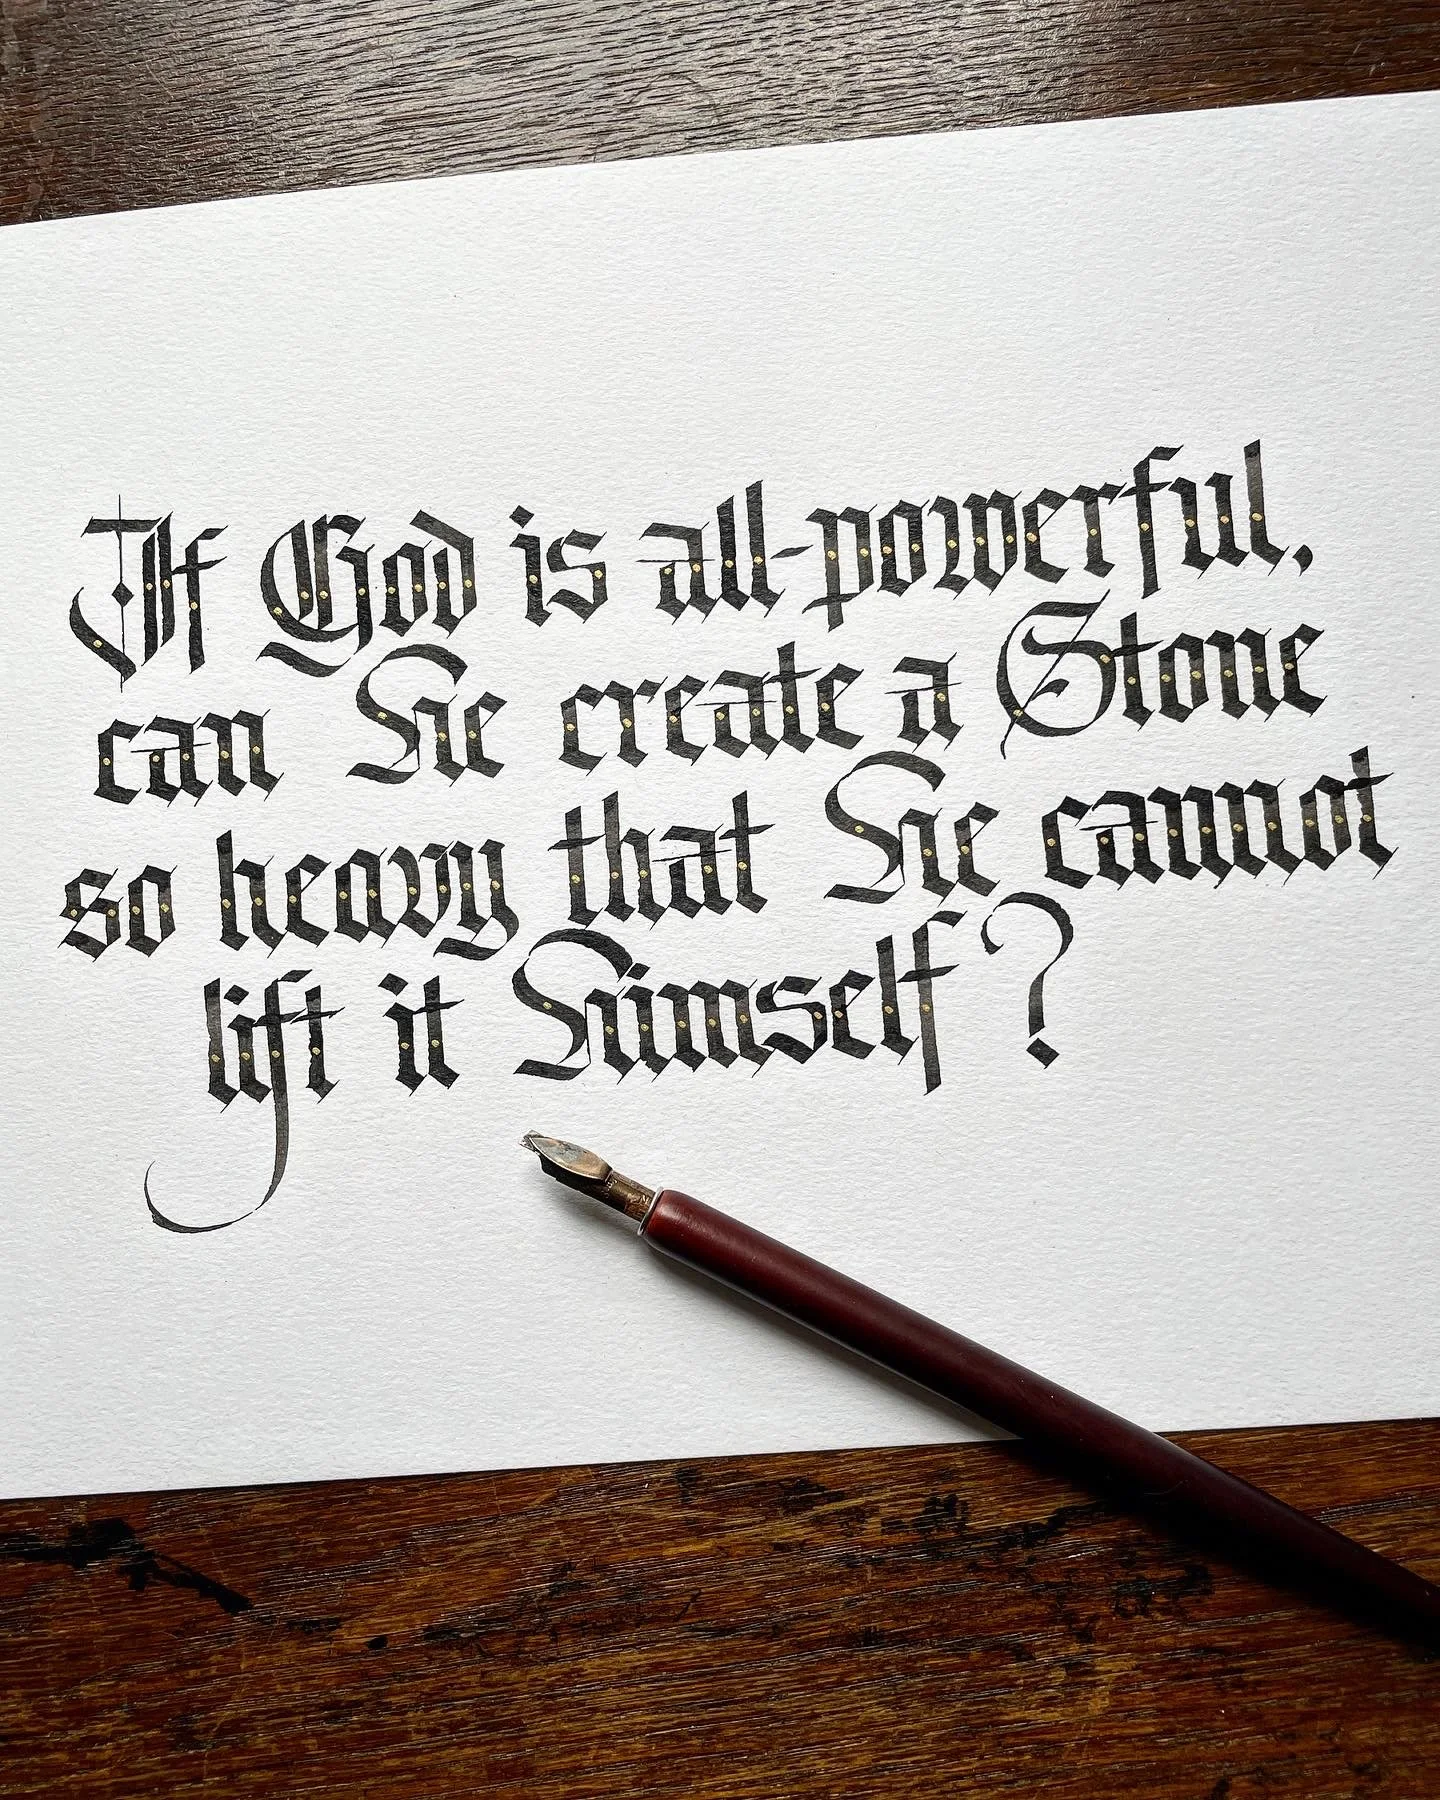 If God is all-powerful,
can He create a Stone
so heavy that He cannot
lift it Himself?